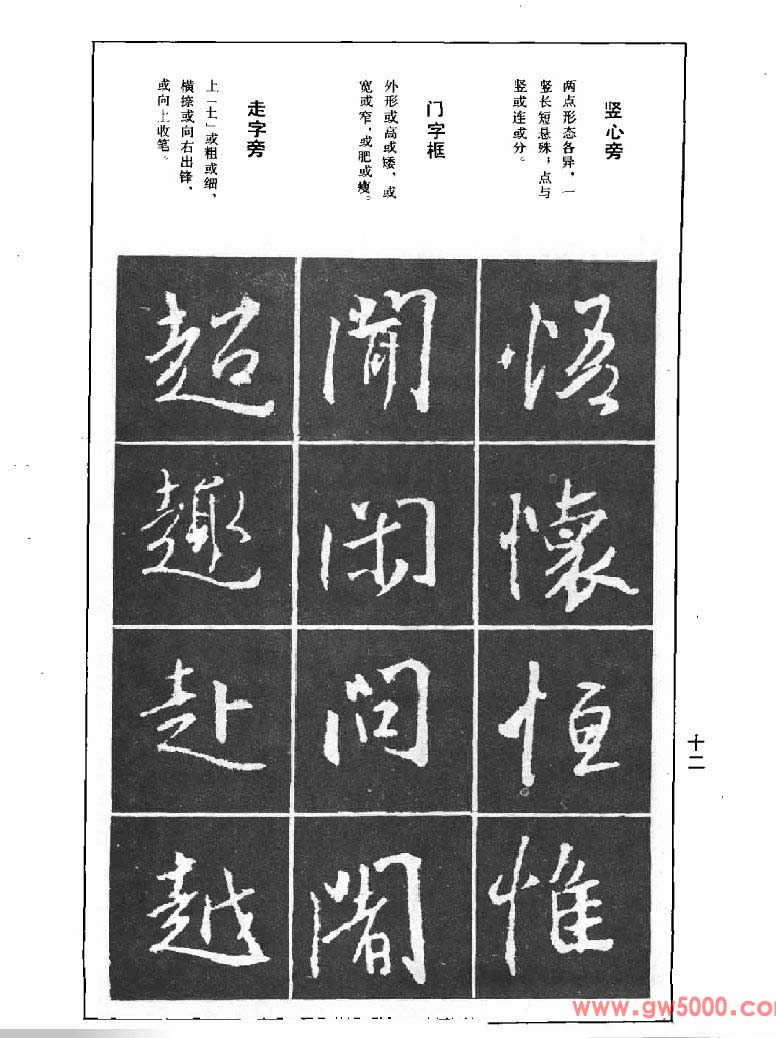 竖心旁
两点形态各异，一
竖长短悬殊；点与
竖或连或分。
门字框
外形或高或矮，或
宽或窄，或肥或瘦。
走字旁
上「土」或粗或细，
横捺或向右出锋，
或向上收笔。
悟
懷
恒
惟
閒
閑
問
闍
超
趣
赴
越
十二
www.gw5000.com